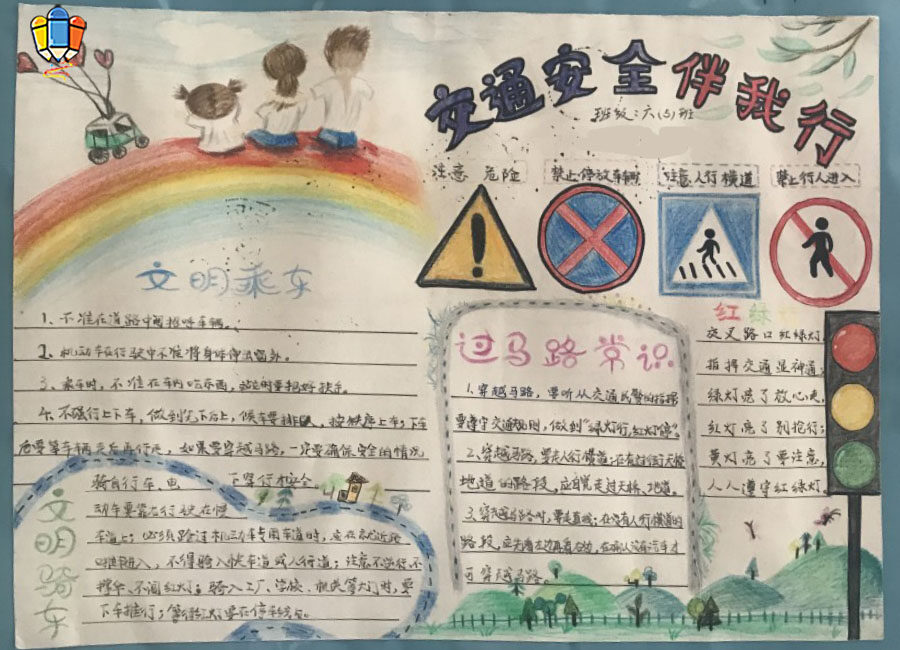 交通安全伴我行
班级：六(5)班
注意 危险
禁止停放车辆
注意人行横道
禁止行人进入
文明乘车
1、不准在道路中间招呼车辆。
2、机动车在行驶中不准将身体伸出窗外。
3、乘车时，不准在车内吃东西，站立时要扶好扶手。
4、不强行上下车，做到先下后上，候车要排队，按秩序上车；下车
后要等车辆走后再行走，如果要穿越马路，一定要确保安全的情况
下穿行
文明骑车
骑自行车、电
动车要靠右行驶在慢
车道上；必须路过机动车专用车道时，应在
，不得骑入快车道或人行道；注意不逆行，不
，不闯红灯；骑入工厂、学校、机关等大门时，要
下车推行；等
过马路常识
1、穿越马路，要听从交通民警的指挥
要遵守交通规则，做到“绿灯行，红灯停”。
2、穿越马路，要走人行横道；在有过街天桥
地道的路段，应自觉走过天桥、地道。
3、穿越马路时，要走直线；在没有人行横道的
路段，应先看左边再看右边，在确认没有汽车才
可穿越马路。
红绿
交叉路口红绿灯，
指挥交通显神通；
绿灯亮了放心走，
红灯亮了别抢行；
黄灯亮了要注意，
人人遵守红绿灯。